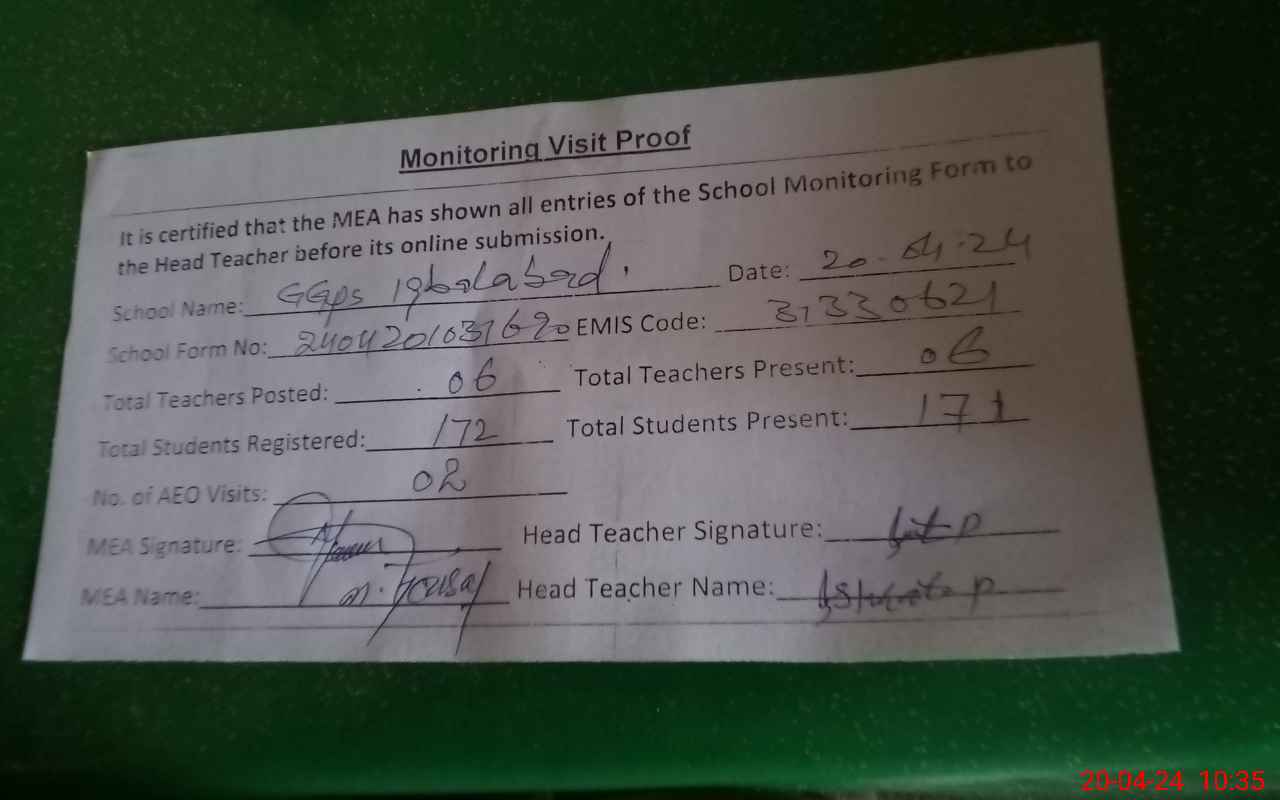 Monitoring Visit Proof
It is certified that the MEA has shown all entries of the School Monitoring Form to
the Head Teacher before its online submission.
School Name: GGps Iqbalabad. Date: 20-04-24
School Form No: 2404201031620 EMIS Code: 31330621
Total Teachers Posted: 06 Total Teachers Present: 06
Total Students Registered: 172 Total Students Present: 171
No. of AEO Visits: 02
MEA Signature: Head Teacher Signature:
MEA Name: M. Head Teacher Name:
20-04-24 10:35